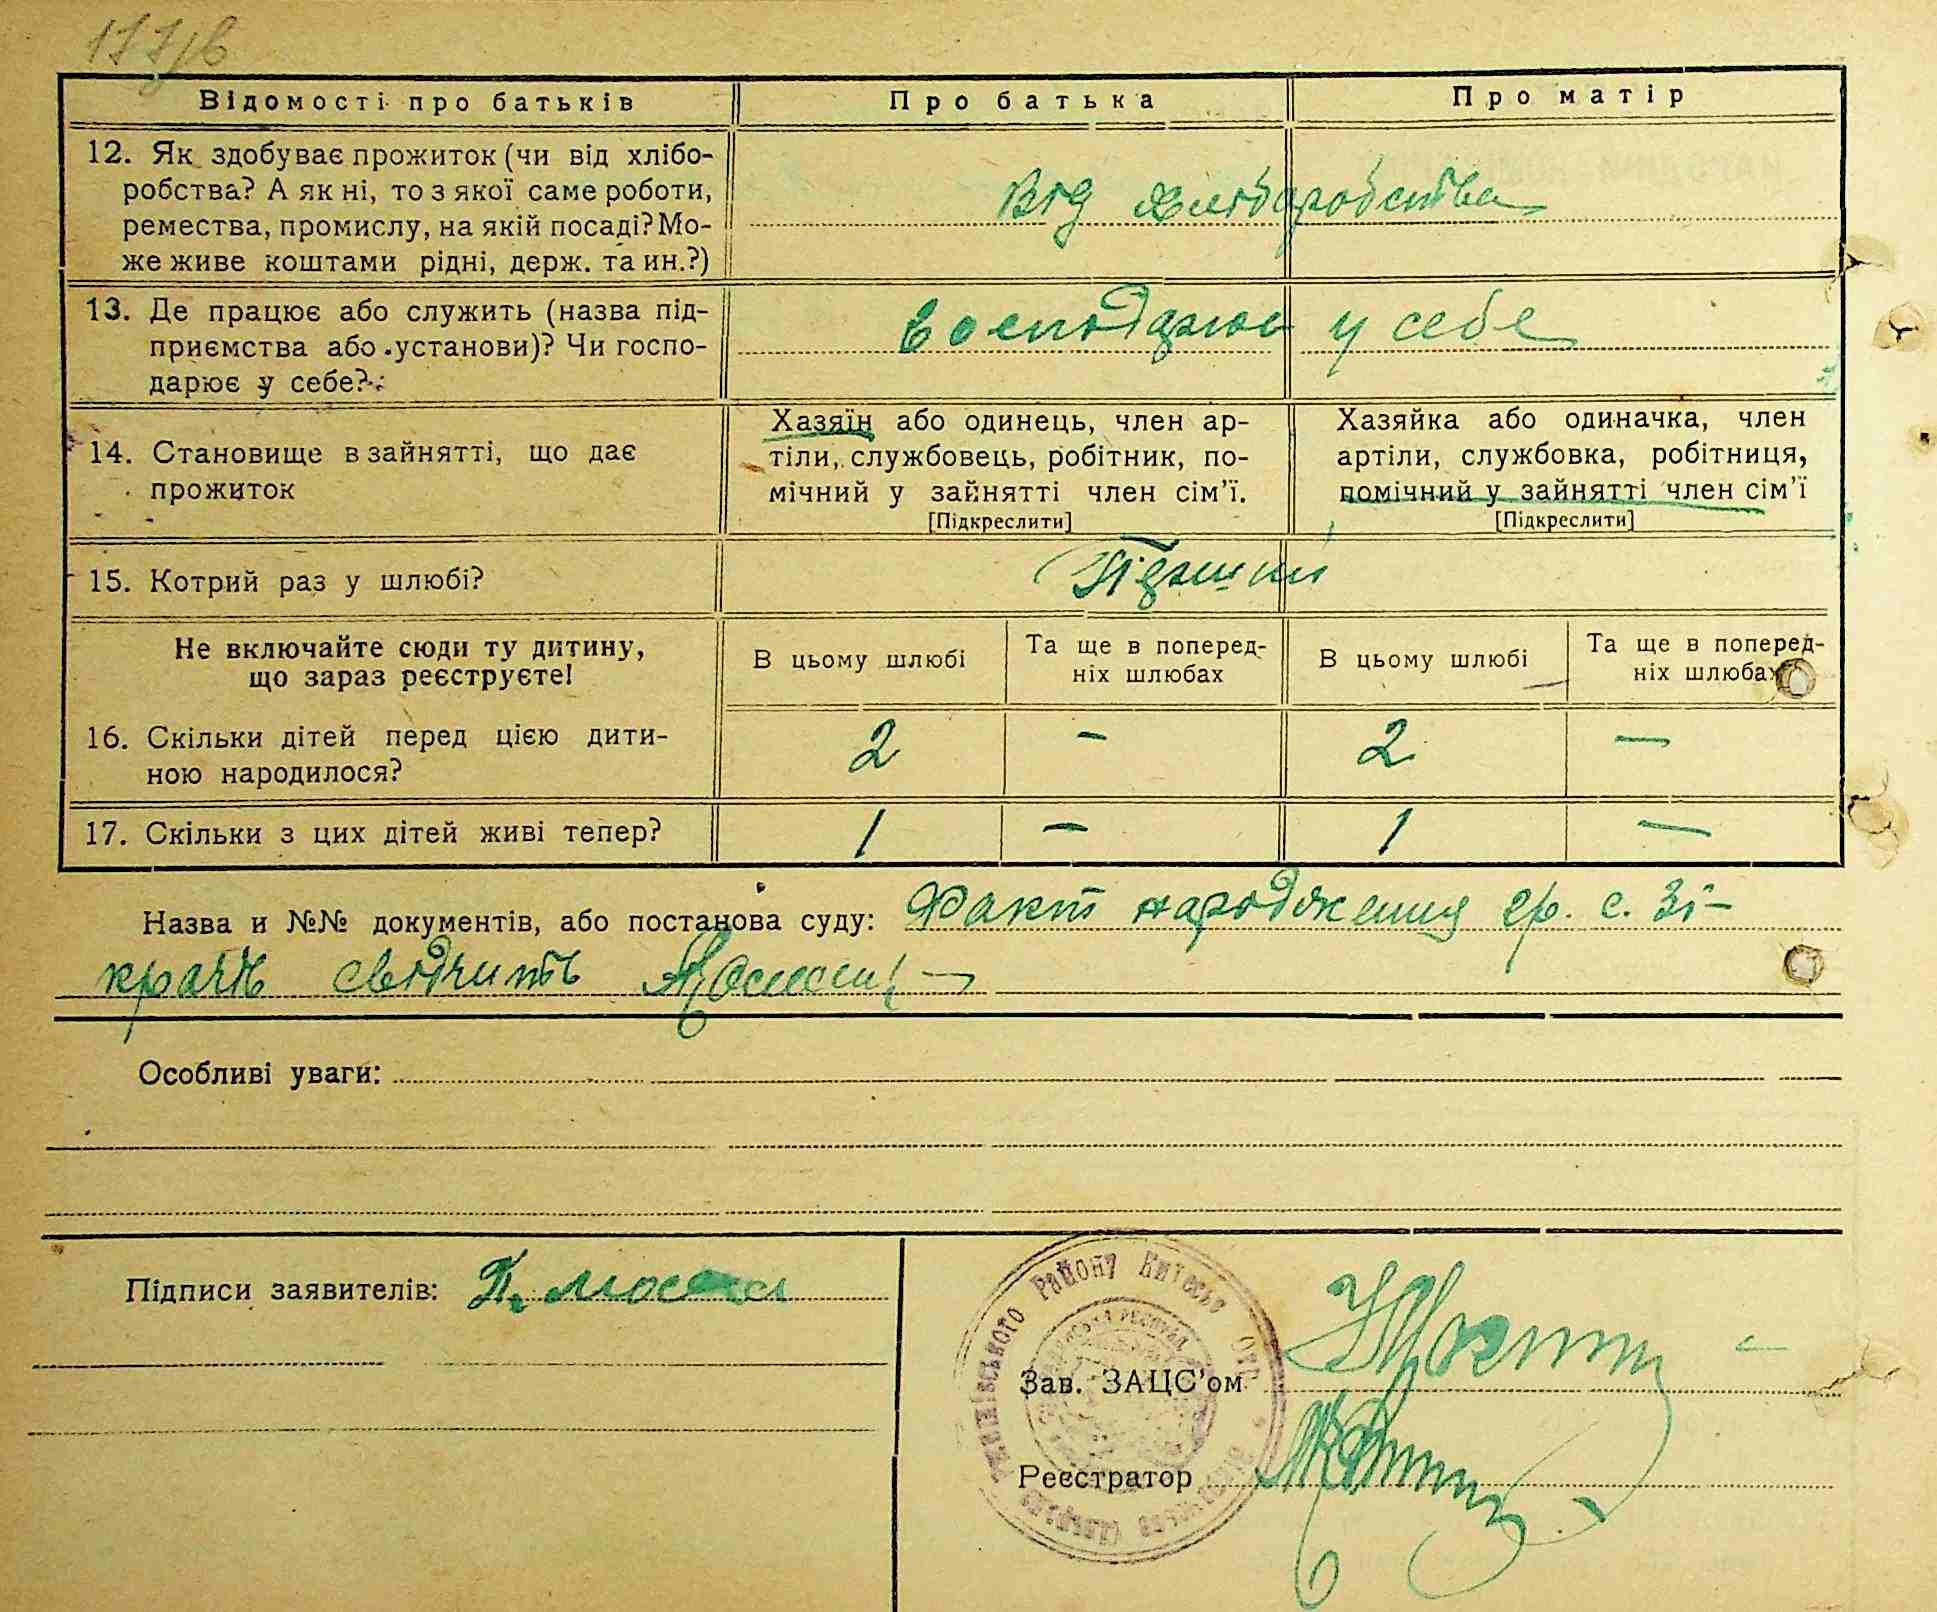 177/в
Відомості про батьків Про батька Про матір
12. Як здобуває прожиток (чи від хлібо-
робства? А як ні, то з якої саме роботи,
ремества, промислу, на якій посаді? Мо-
же живе коштами рідні, держ. та ин.?)
Від хліборобства
13. Де працює або служить (назва під-
приємства або установи)? Чи госпо-
дарює у себе?
Господарюють у себе
14. Становище в зайнятті, що дає
прожиток
Хазяїн або одинець, член ар-
тіли, службовець, робітник, по-
мічний у зайнятті член сім'ї.
[Підкреслити]
Хазяйка або одиначка, член
артіли, службовка, робітниця,
помічний у зайнятті член сім'ї
[Підкреслити]
15. Котрий раз у шлюбі?
Не включайте сюди ту дитину,
що зараз реєструєте!
В цьому шлюбі
Та ще в поперед-
ніх шлюбах
В цьому шлюбі
Та ще в поперед-
ніх шлюбах
16. Скільки дітей перед цією дити-
ною народилося?
2 – 2 –
17. Скільки з цих дітей живі тепер? 1 – 1 –
Назва и №№ документів, або постанова суду: Факт народження гр. с. Зі-
свідчить
Особливі уваги:
Підписи заявителів:
Зав. ЗАЦС'ом
Реєстратор
Району